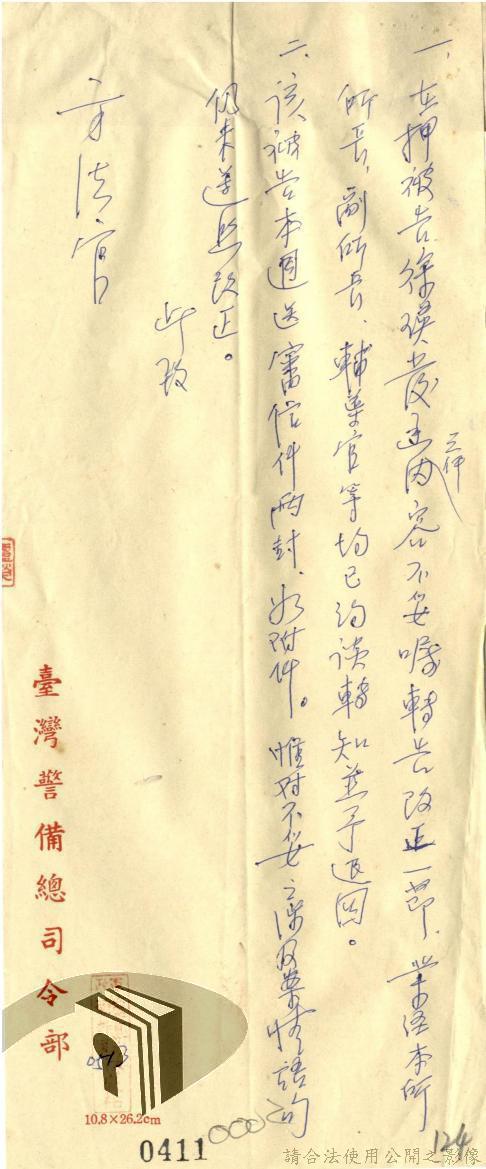 一、在押被告徐瑛發還內容不妥囑轉告改正一節、業經本所
信件
所長、副所長、輔導官等均已約談轉知並予退回。
二、該被告本週送審信件兩封、如附件。惟對不妥之涉及案情語句
仍未遵照改正。
此致
法官
臺灣警備總司令部
10.8×26.2cm
0411
124
請合法使用公開之影像